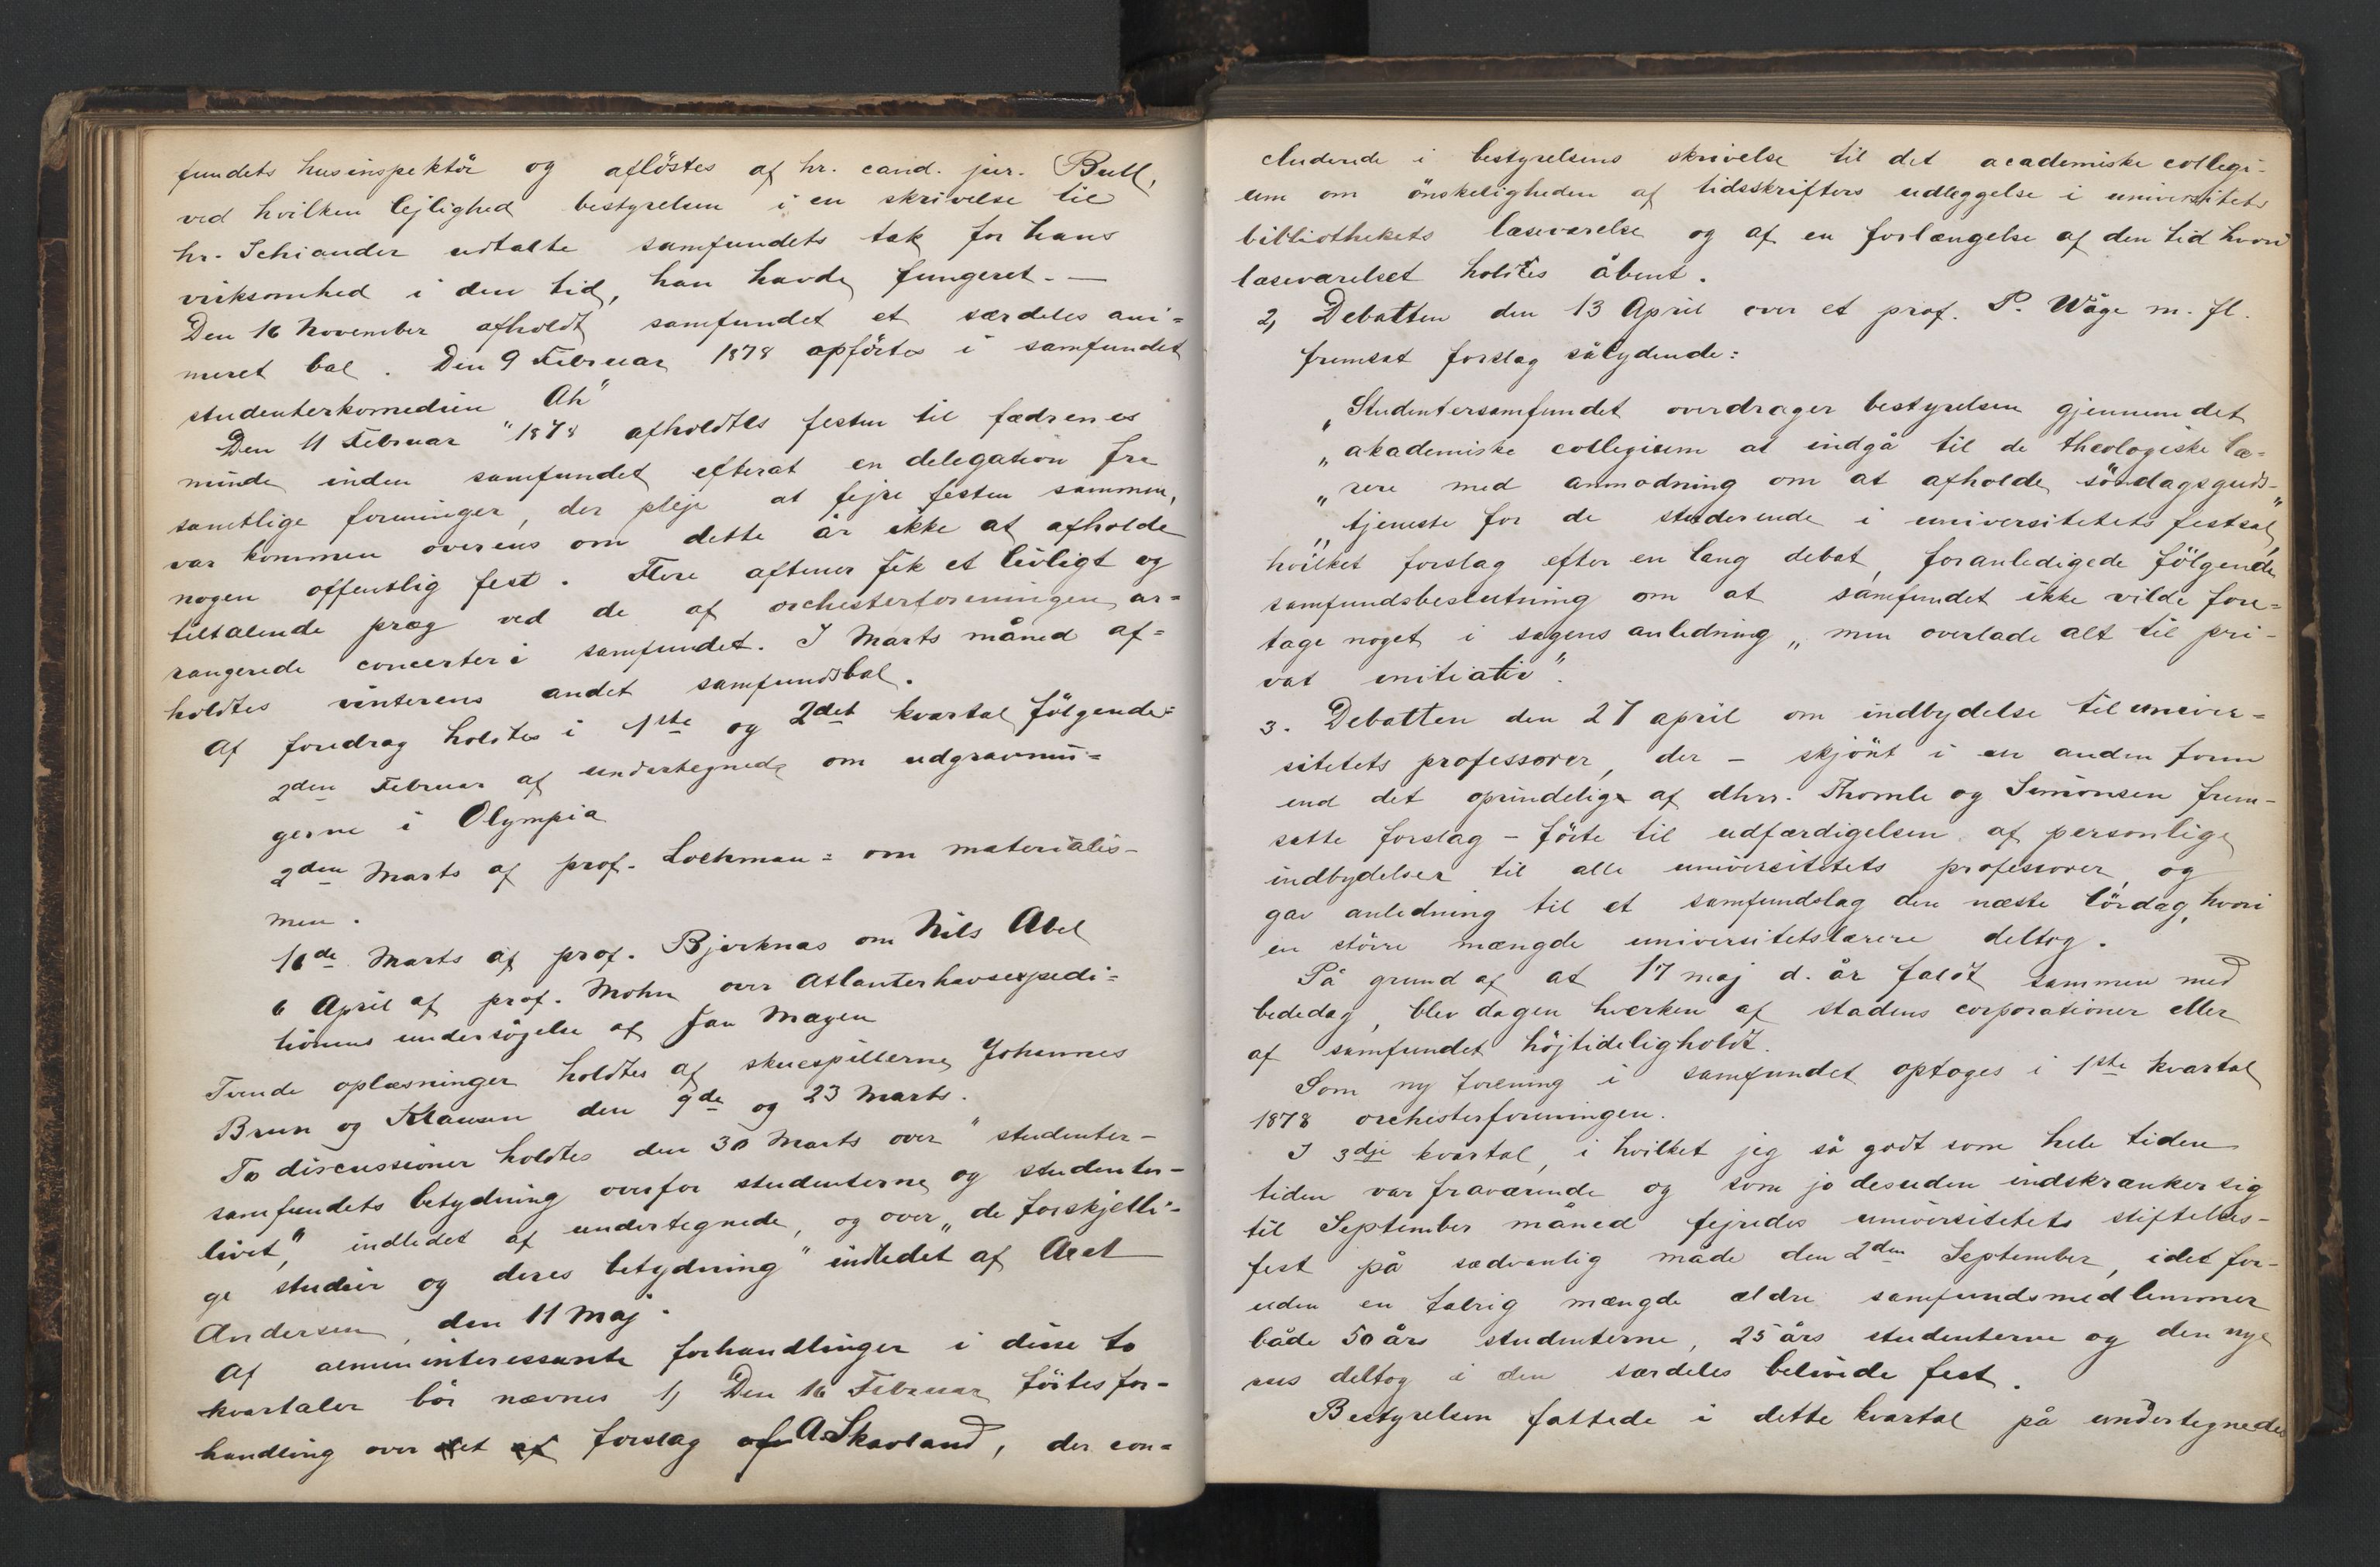 fundets husinspektör og aflöstes af hr. cand. jur. Bull,
ved hvilken lejlighed bestyrelsen i en skrivelse til
hr. Schiander udtalte samfundets tak for hans
virksomhed i den tid, han havde fungeret. —
Den 16 November afholdt samfundet et særdeles ani=
meret bal. Den 9 Februar 1878 opförtes i samfundet
studenterkomedien "Ah"
Den 11 Februar 1878 afholdtes festen til fædrenes
minde inden samfundet efterat en delegation fra
samtlige foreninger, der pleje at fejre festen sammen,
var kommen overens om dette år ikke at afholde
nogen offentlig fest. Flere aftener fik et livligt og
tiltalende præg ved de af orchesterforeningen ar=
rangerede concerter i samfundet. I Marts måned af=
holdtes vinterens andet samfundsbal.
Af foredrag holdtes i 1ste og 2det kvartal fölgende:
2den Februar af undertegnede om udgravnin=
gerne i Olympia
2den Marts af prof. Lochman: om materialis-
men.
16de Marts af prof. Bjerknæs om Nils Abel
6 April af prof. Mohn over Atlanterhavsexpedi=
tionens undersögelse af Jan Mayen
Tvende oplæsninger holdtes af skuespillerne Johannes
Brun og Klausen den 9de og 23 Marts.
To discussioner holdtes den 30 Marts over "studenter-
samfundets betydning overfor studenterne og studenter-
livet," indledet af undertegnede, og over „de forskjelli-
ge studier og deres betydning" indledet af Axel
Andersen, den 11 Maj.
Af almeninteressante forhandlinger i disse to
kvartaler bör nævnes 1, Den 16 Februar förtes for-
handling over et forslag af A. Skavland, der con=
cluderede i bestyrelsens skrivelse til det academiske collegi-
um om önskeligheden af tidsskrifters udlæggelse i universitets
bibliothekets læseværelse og af en forlængelse af den tid hvori
læseværelset holdtes åbent.
2, Debatten den 13 April over et prof. P. Wåge m. fl.
fremsat forslag sålydende:
„Studentersamfundet overdrager bestyrelsen gjennem det
„akademiske collegium at indgå til de theologiske læ-
„rere med anmodning om at afholde söndagsguds-
„tjeneste for de studerende i universitetets festsal,"
hvilket forslag efter en lang debat, foranledigede fölgende
samfundsbeslutning om at samfundet ikke vilde fore=
tage noget i sagens anledning „men overlade alt til pri-
vat initiativ".
3. Debatten den 27 april om indbydelse til univer=
sitetets professorer, der – skjönt i en anden form
end det oprindelige af dhrr. Thomle og Simonsen frem-
satte forslag – förte til udfærdigelsen af personlige
indbydelser til alle universitetets professorer, og
gav anledning til et samfundslag den næste lördag, hvori
en större mængde universitetslærere deltog.
På grund af at 17 maj d. år faldt sammen med
bededag, blev dagen hverken af stadens corporationer eller
af samfundet höjtideligholdt.
Som ny forening i samfundet optoges i 1ste kvartal
1878 orchesterforeningen.
I 3dje kvartal, i hvilket jeg så godt som hele tiden
tiden var fraværende og som jo desuden indskrænker sig
til September måned fejredes universitetets stiftelses-
fest på sædvanlig måde den 2den September, idet for-
uden en talrig mængde ældre samfundsmedlemmer
både 50 års studenterne, 25 års studenterne og den nye
rus deltog i den særdeles belivede fest.
Bestyrelsen fattede i dette kvartal på undertegnedes